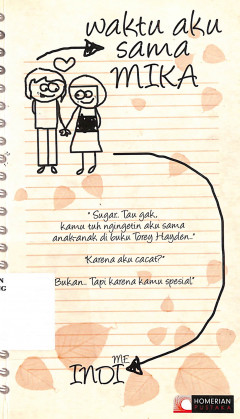 waktu aku
sama
MIKA
" Sugar.. Tau gak..
kamu tuh ngingetin aku sama
anak-anak di buku Torey Hayden..."
"Karena aku cacat?"
"Bukan... Tapi karena kamu spesial"
ME
INDI
HOMERIAN
PUSTAKA